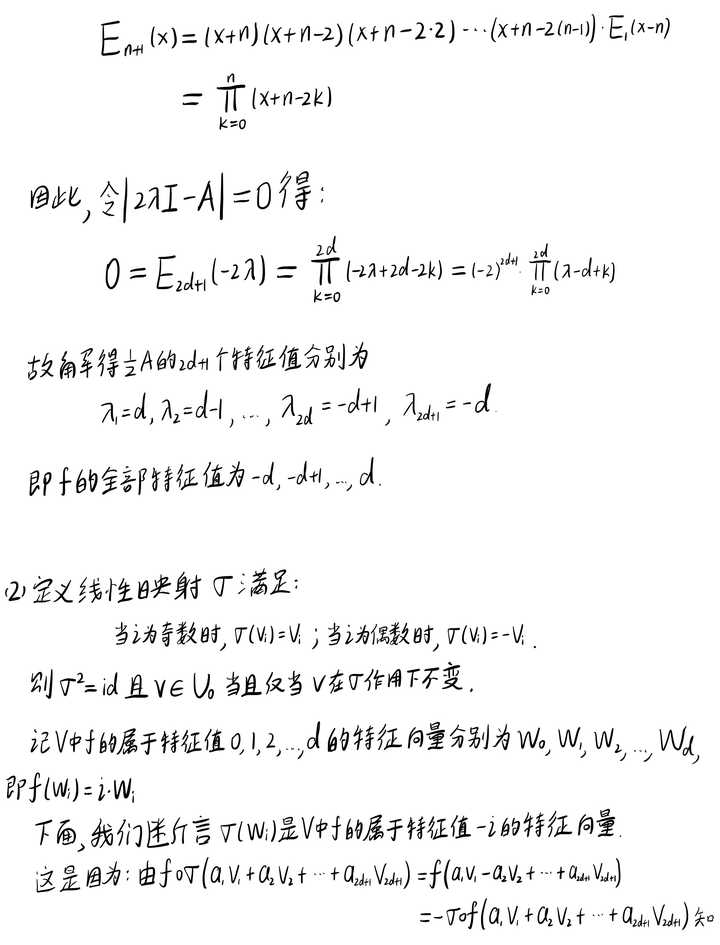 E_{n+1}(x) = (x+n)(x+n-2)(x+n-2·2)···(x+n-2(n-1))·E_1(x-n)
= ∏_{k=0}^{n} (x+n-2k)
因此, 令|2λI-A|=0得:
0 = E_{2d+1}(-2λ) = ∏_{k=0}^{2d} (-2λ+2d-2k) = (-2)^{2d+1}·∏_{k=0}^{2d} (λ-d+k)
故解得½A的2d+1个特征值分别为
λ_1=d, λ_2=d-1, ..., λ_{2d}=-d+1, λ_{2d+1}=-d.
即f的全部特征值为-d, -d+1, ..., d.
(2) 定义线性映射σ满足:
当i为奇数时, σ(v_i)=v_i ; 当i为偶数时, σ(v_i)=-v_i .
则σ²=id且v∈U_0当且仅当v在σ作用下不变.
记V中f的属于特征值0,1,2,...,d的特征向量分别为W_0, W_1, W_2, ..., W_d,
即f(W_i)=i·W_i
下面, 我们断言σ(W_i)是V中f的属于特征值-i的特征向量.
这是因为: 由f∘σ(a_1v_1+a_2v_2+···+a_{2d+1}v_{2d+1})=f(a_1v_1-a_2v_2+···+a_{2d+1}v_{2d+1})
=-σ∘f(a_1v_1+a_2v_2+···+a_{2d+1}v_{2d+1})知